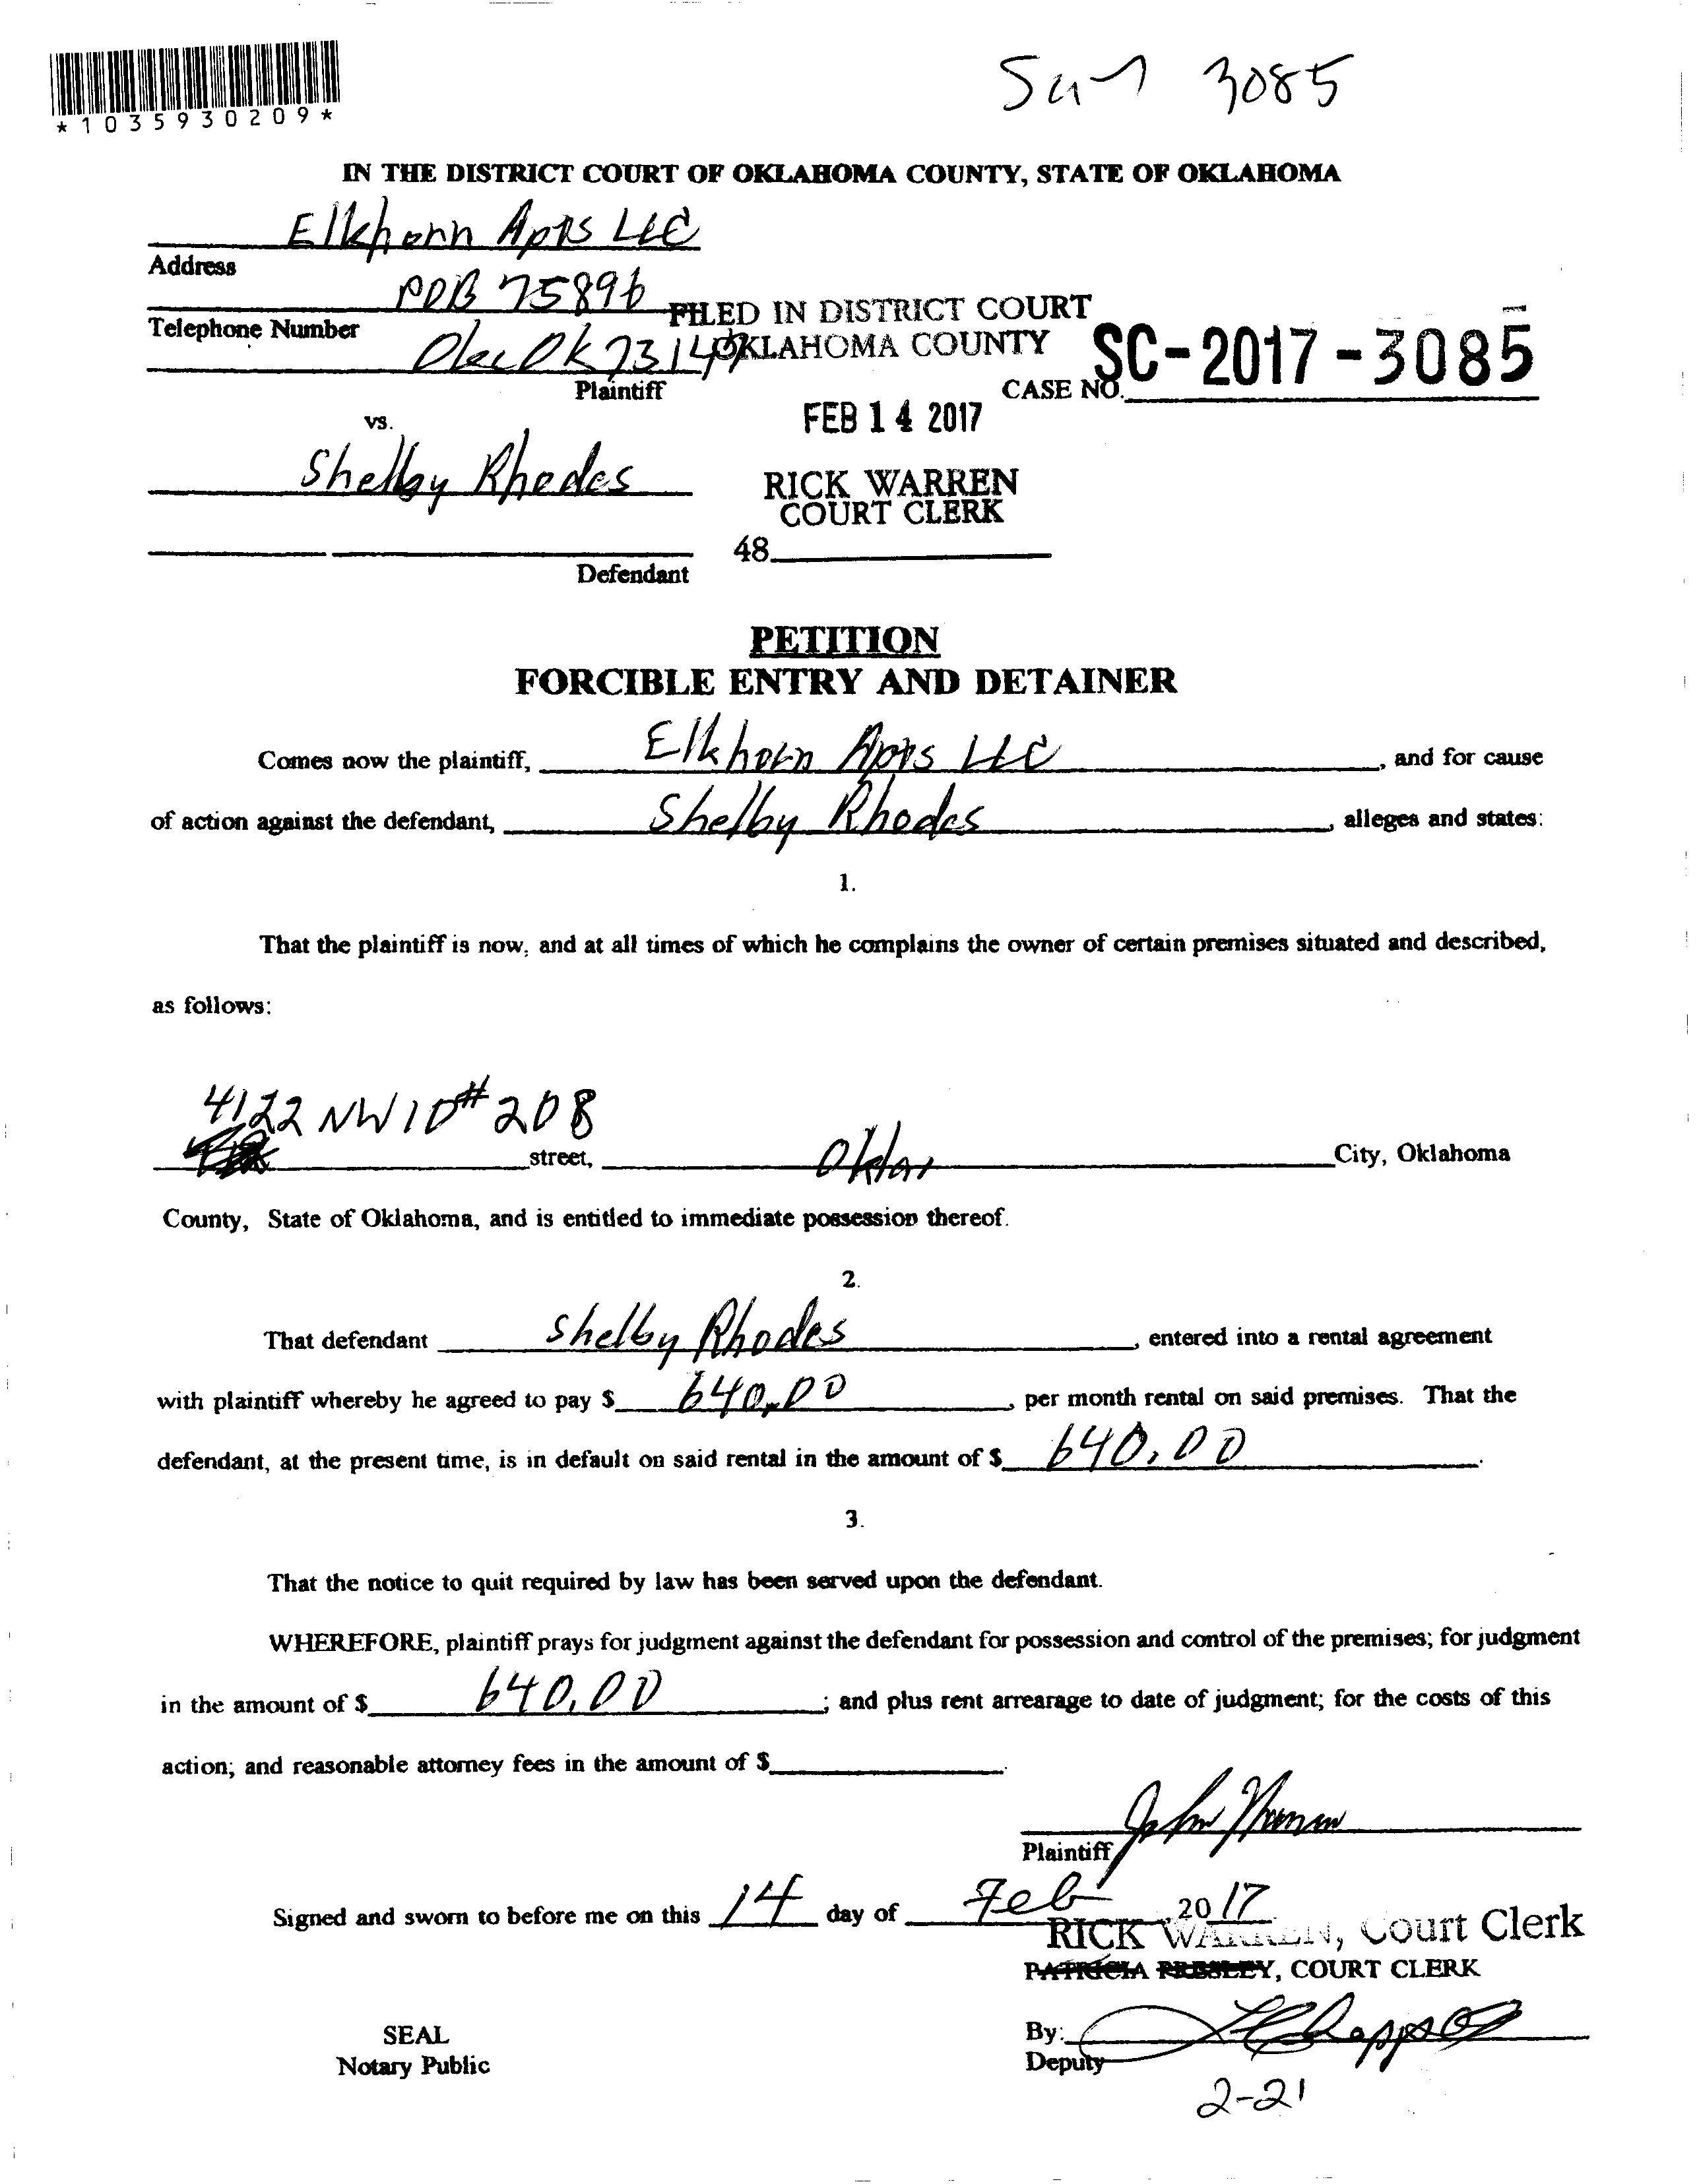 *1035930209*
3085
IN THE DISTRICT COURT OF OKLAHOMA COUNTY, STATE OF OKLAHOMA
Elkhorn Apts LLC
Address
POB 75896
FILED IN DISTRICT COURT
Telephone Number
OKC OK 73147
OKLAHOMA COUNTY
SC-2017-3085
Plaintiff
CASE NO.
vs.
FEB 14 2017
Shelby Rhodes
RICK WARREN
COURT CLERK
48
Defendant
PETITION
FORCIBLE ENTRY AND DETAINER
Comes now the plaintiff, Elkhorn Apts LLC, and for cause
of action against the defendant, Shelby Rhodes, alleges and states:
1.
That the plaintiff is now, and at all times of which he complains the owner of certain premises situated and described,
as follows:
4122 NW 10 # 208
street, City, Oklahoma
County, State of Oklahoma, and is entitled to immediate possession thereof.
2.
That defendant Shelby Rhodes, entered into a rental agreement
with plaintiff whereby he agreed to pay $ 640.00, per month rental on said premises. That the
defendant, at the present time, is in default on said rental in the amount of $ 640.00.
3.
That the notice to quit required by law has been served upon the defendant.
WHEREFORE, plaintiff prays for judgment against the defendant for possession and control of the premises; for judgment
in the amount of $ 640.00; and plus rent arrearage to date of judgment; for the costs of this
action; and reasonable attorney fees in the amount of $.
John
Plaintiff
Signed and sworn to before me on this 14 day of Feb, 2017.
RICK WARREN, Court Clerk
PATRICIA PRESLEY, COURT CLERK
SEAL
By:
Notary Public
Deputy
2-21